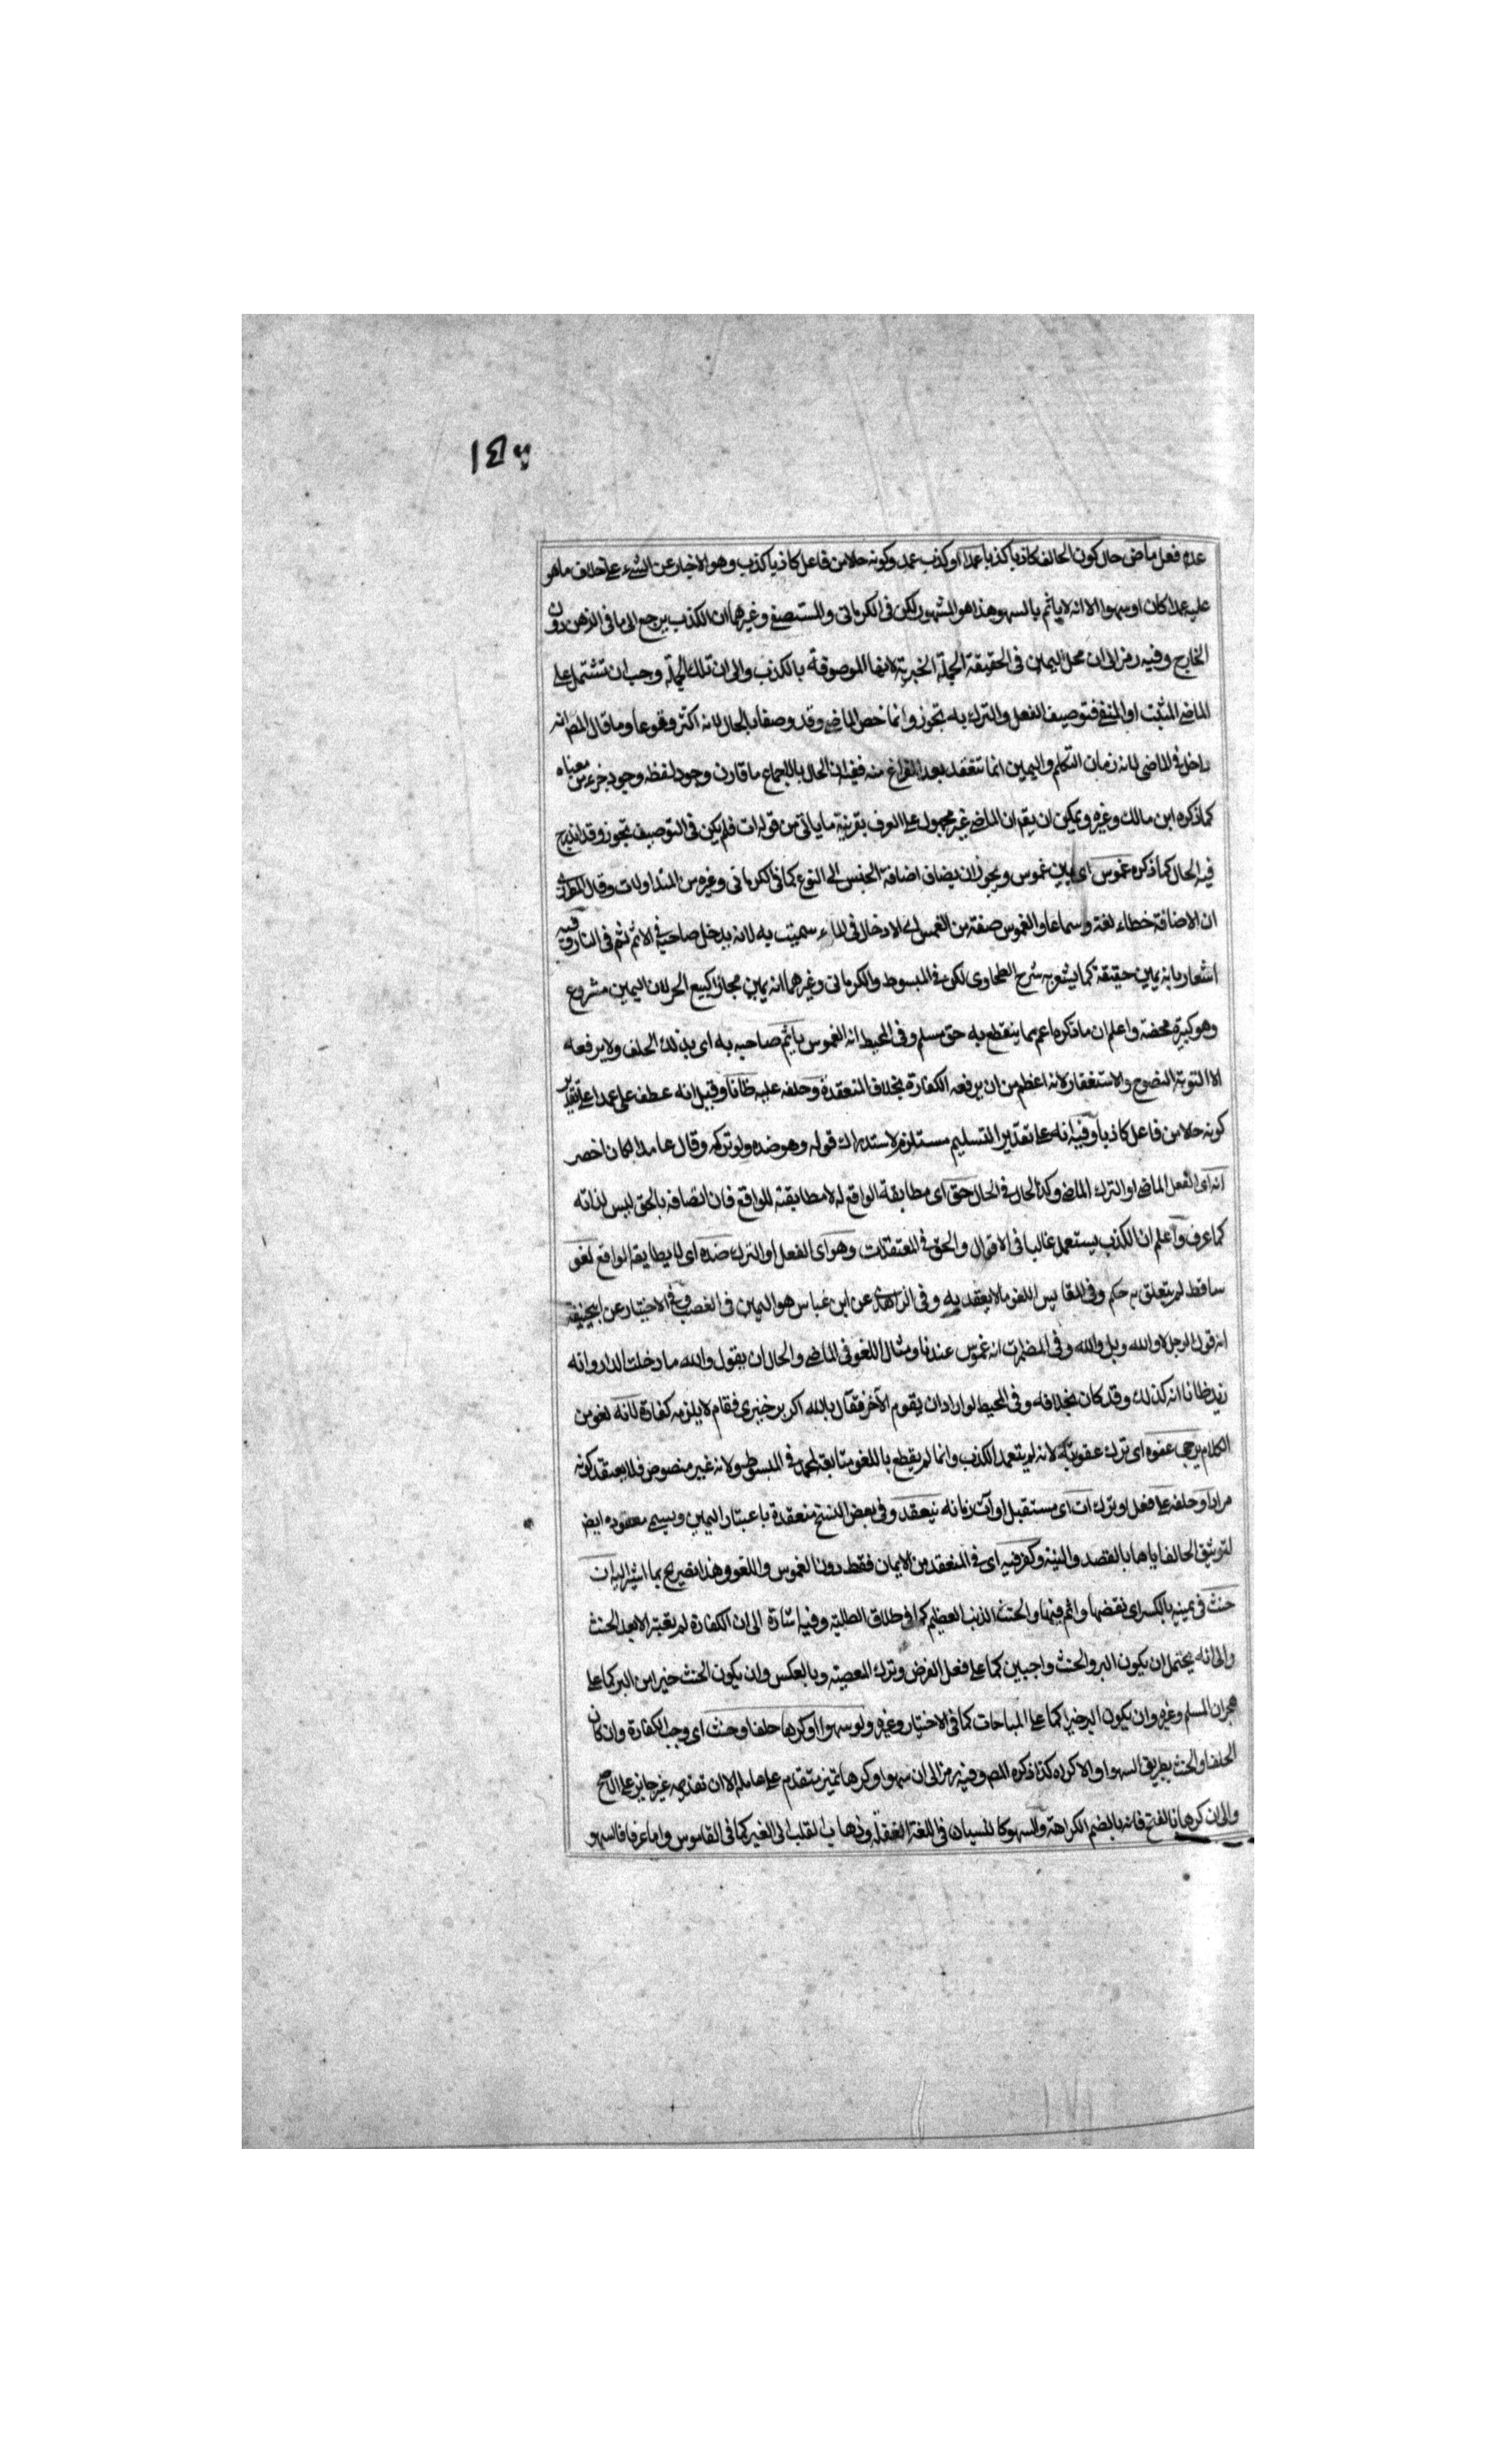 عدم فعل ماض حال كون الحالف كاذبا كذبا عمدا او كذب عمد وكونه حلا من فاعل كاذبا كذب وهو الاخبار عن الشيء على خلاف ما هو
عليه عمدا كان او سهوا الا انه لا ياثم بالسهو هذا هو المشهور لكن فى الكرمانى والمستصفى وغيرهما ان الكذب يرجع الى ما فى الذهن دون
الخارج وفيه رمز الى ان محل اليمين فى الحقيقة الجملة الخبرية لانها الموصوفة بالكذب والى ان تلك الجملة وجب ان تشتمل على
الماضى المثبت او المنفى فتوصيف الفعل والترك به تجوز وانما خص الماضى وقد وصفا بالحال لانه اكثر وقوعا وما قال المص انه
داخل فى الماضى لانه زمان التكلم واليمين انما تنعقد بعد الفراغ منه ففيه ان الحال بالاجماع ما قارن وجود لفظه وجود جزء من معناه
كما ذكره ابن مالك وغيره ويمكن ان يقم ان الماضى غير محمول على العرف بقرينة ما ياتى من قوله ات فلم يكن فى التوصيف تجوز وقد اندرج
فيه الحال كما ذكره غموس اى يمين غموس ويجوز ان يضاف اضافة الجنس الى النوع كما فى الكرمانى وغيره من المتداولات وقال المطرزى
ان الاضافة خطاء لغة وسماعا والغموس صفة من الغمس اى الادخال فى الماء سميت به لانه يدخل صاحبه فى الاثم ثم فى النار وفيه
اشعار بانه يمين حقيقة كما يشعر به شرح الطحاوى لكن فى المبسوط والكرمانى وغيرهما انه يمين مجازا كبيع الحر لان اليمين مشروع
وهو كبيرة محضة واعلم ان ما ذكره اعم مما ينقطع به حق مسلم وفى المحيط انه الغموس ياثم صاحبه به اى بذلك الحلف ولا يرفعه
الا التوبة النصوح والاستغفار لانه اعظم من ان يرفعه الكفارة بخلاف المنعقدة وحلفه عليه ظانا وقيل انه عطف على عمدا على تقدير
كونه حلا من فاعل كاذبا وفيه انه على تقدير التسليم مستلزم لاستدراك قوله وهو ضده ولو تركه وقال عامدا لكان اخصر
انه اى الفعل الماضى او الترك الماضى وكذا الحال فى الحال حق اى مطابقة الواقع له لا مطابقته للواقع فان اتصافه بالحق ليس لذاته
كما عرف واعلم ان الكذب يستعمل غالبا فى الاقوال والحق فى المعتقدات وهو اى الفعل او الترك ضده اى لا يطابقه الواقع لغو
ساقط لم يتعلق به حكم وفى المقاييس اللغو ما لا يعقد به وفى الزاهدى عن ابن عباس هو اليمين فى الغضب وفى الاختيار عن ابيحنيفة
انه قول الرجل لا والله وبلى والله وفى المضمرات انه غموس عندنا ومثال اللغو فى الماضى والحال ان يقول والله ما دخلت الدار وانه
زيد ظانا انه كذلك وقد كان بخلافه وفى المحيط لو اراد ان يقوم الآخر فقال بالله اكر بر خيزى فقام لا يلزمه كفارة لانه لغو من
الكلام يرجى عفوه اى ترك عقوبته لانه لم يتعمد الكذب وانما لم يقطع باللغو متابعة لمحمد فى المبسوط ولانه غير منصوص فلا يعتقد كونه
مرادا وحلفه على فعل او ترك ات اى مستقبل او آت زمانه ينعقد وفى بعض النسخ منعقدة باعتبار اليمين ويسمى معقوده ايض
لتوثيق الحالف اياها بالقصد والنية وكفر فيه اى فى المنعقد من الايمان فقط دون الغموس واللغو وهذا تصريح بما اشير اليه ان
حنث فى يمينه بالكسر اى نقضها واثم فيها والحنث الذنب العظيم كما فى طلاق الطلبة وفيه اشارة الى ان الكفارة لم يعتبر الا بعد الحنث
والى انه يحتمل ان يكون البر والحنث واجبين كما على فعل الفرض وترك المعصية وبالعكس وان يكون الحنث خيرا من البر كما على
هجران المسلم وغيره وان يكون البر خيرا كما على المباحات كما فى الاختيار وغيره ولو سهوا او كرها حلف او حنث اى وجب الكفارة وان كان
الحلف او الحنث بطريق السهو او الاكراه كذا ذكره المص وفيه رمز الى ان سهوا وكرها تميز متقدم على عامله الا ان تقديمه غير جايز على الاصح
والى ان كرها بالفتح فانه بالضم الكراهة والسهو كالنسيان فى اللغة الغفلة وذهاب القلب الى الغير كما فى القاموس واما عرفا فالسهو